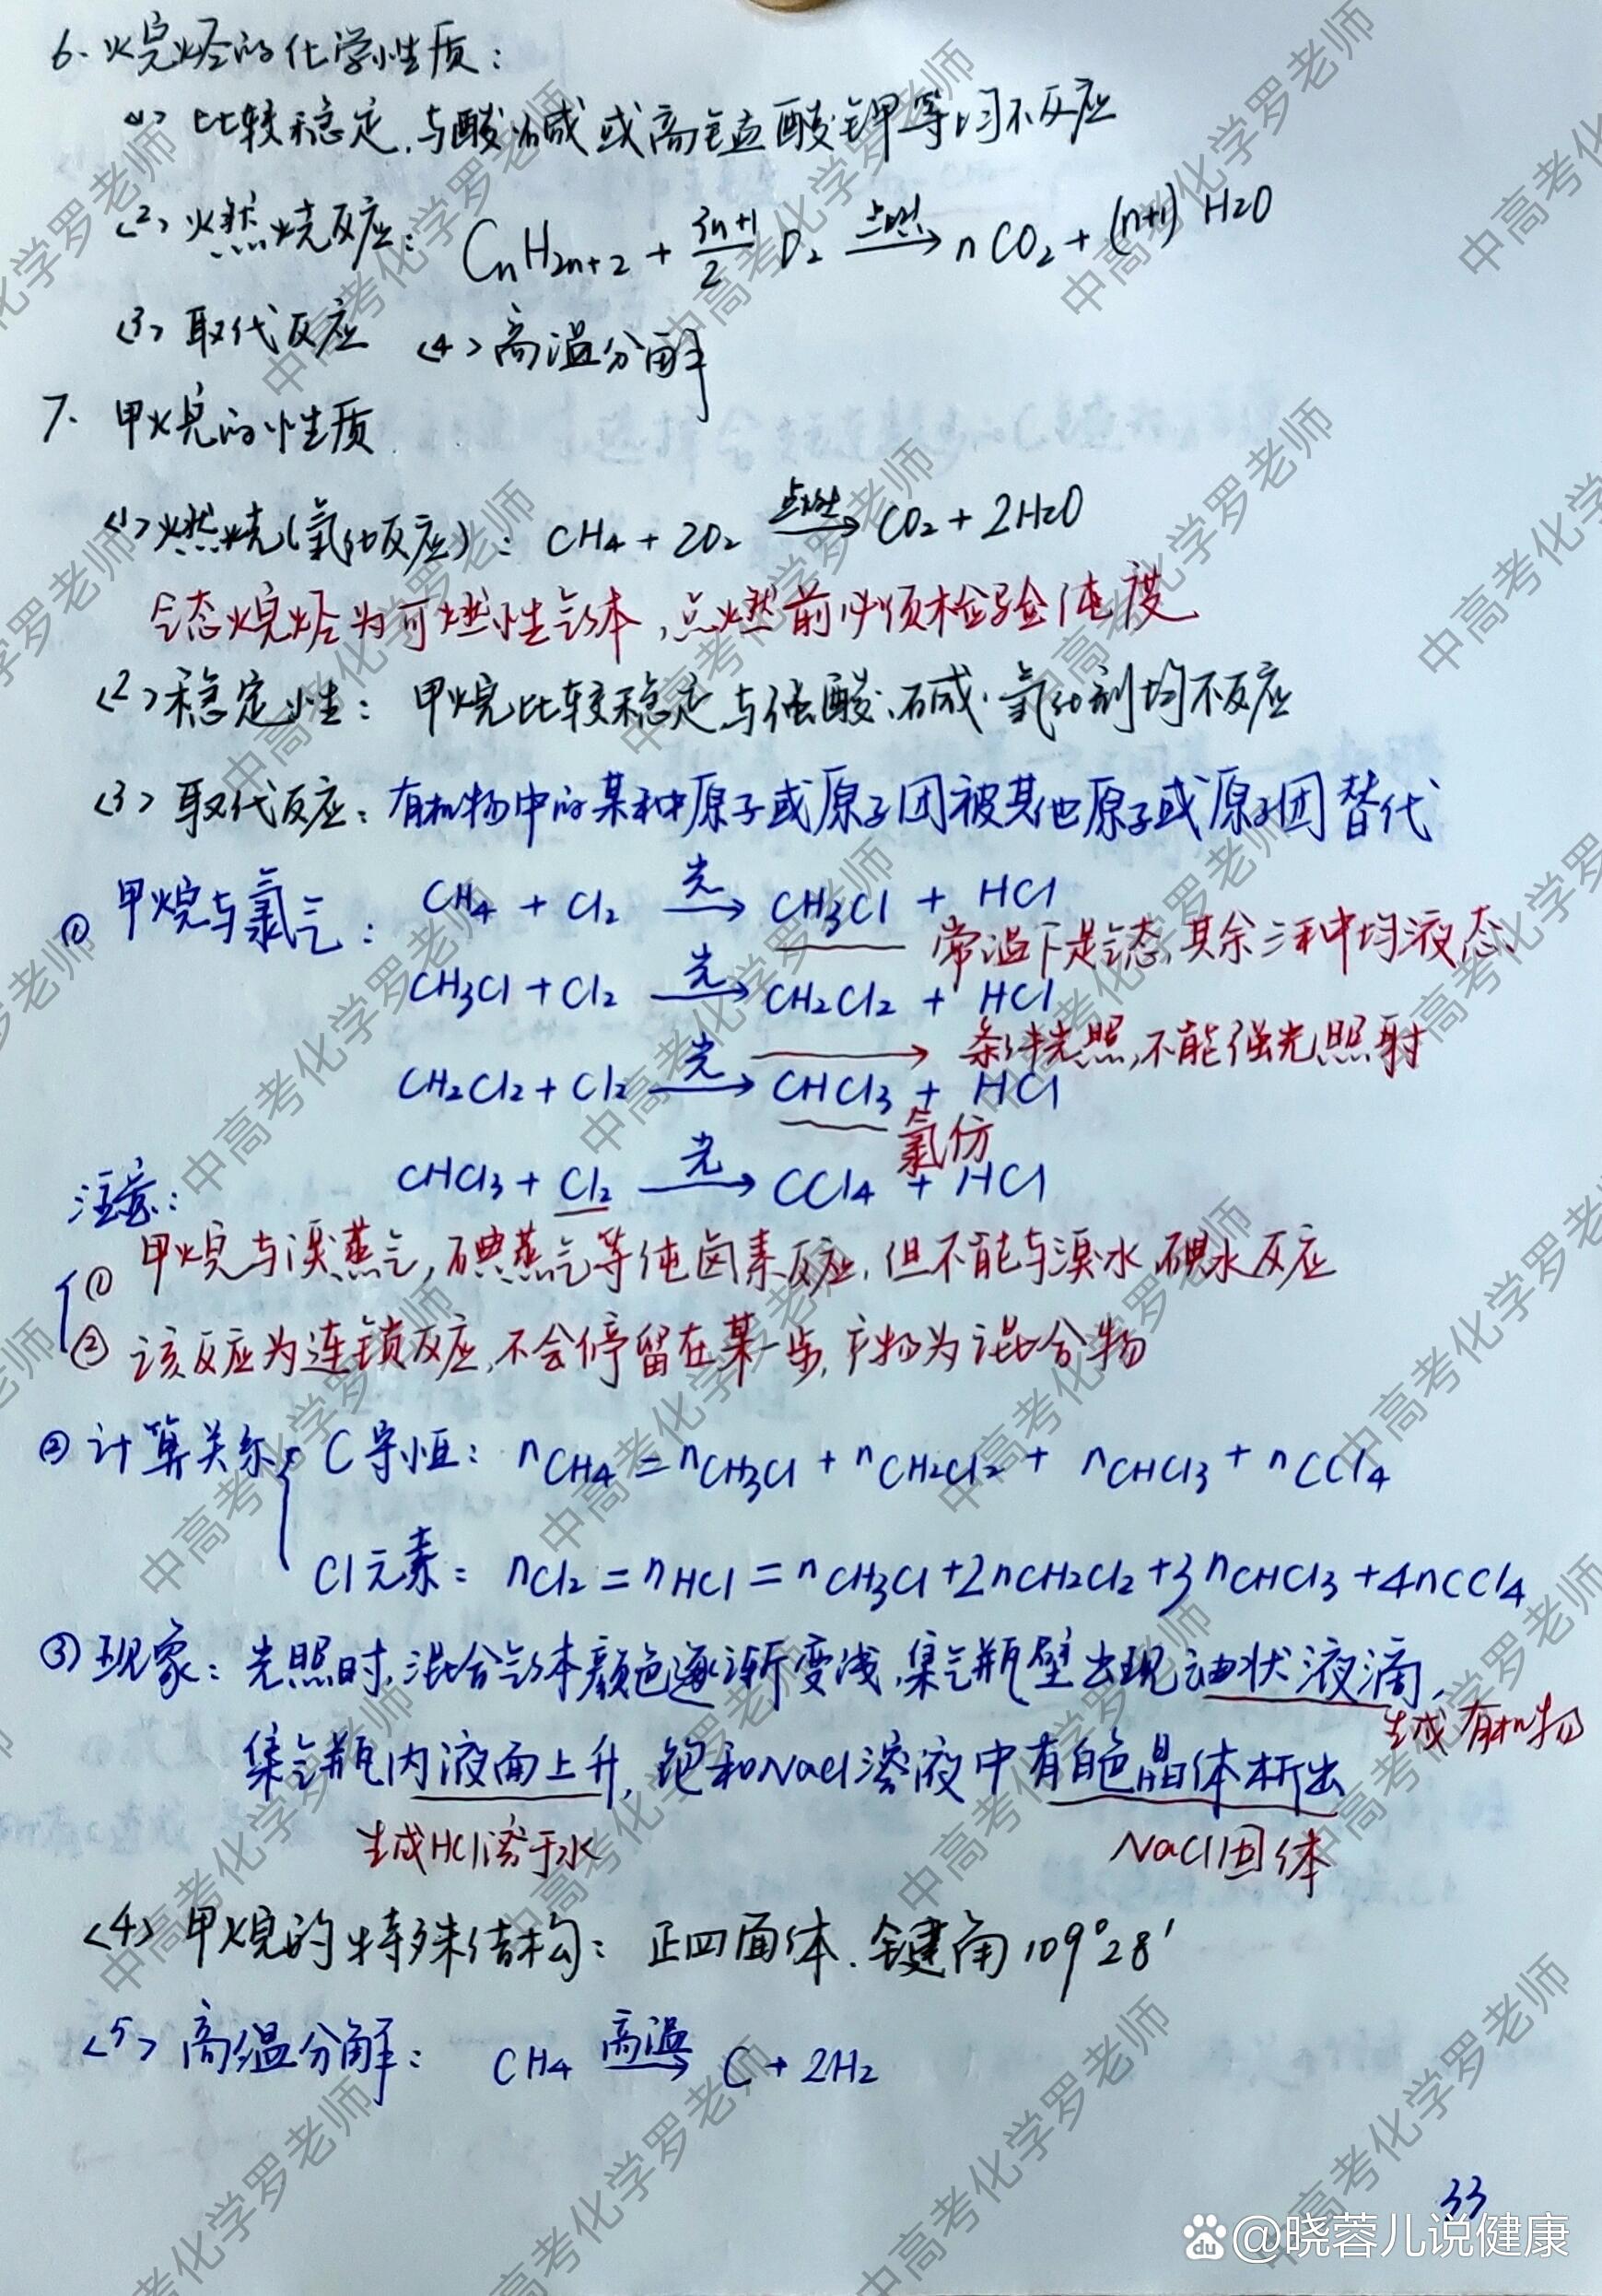 6. 烷烃的化学性质：
<1> 比较稳定，与酸、碱或高锰酸钾等均不反应
<2> 燃烧反应：CnH2n+2 + (3n+1)/2 O2 —点燃→ nCO2 + (n+1) H2O
<3> 取代反应 <4> 高温分解
7. 甲烷的性质
<1> 燃烧(氧化反应)：CH4 + 2O2 —点燃→ CO2 + 2H2O
气态烷烃为可燃性气体，点燃前必须检验纯度
<2> 稳定性：甲烷比较稳定与强酸、碱、氧化剂均不反应
<3> 取代反应：有机物中的某种原子或原子团被其他原子或原子团替代
① 甲烷与氯气：CH4 + Cl2 —光→ CH3Cl + HCl
常温下是气态，其余三种均液态
CH3Cl + Cl2 —光→ CH2Cl2 + HCl
→ 条件光照，不能强光照射
CH2Cl2 + Cl2 —光→ CHCl3 + HCl
氯仿
CHCl3 + Cl2 —光→ CCl4 + HCl
注意：
① 甲烷与溴蒸气，碘蒸气等纯卤素反应，但不能与溴水、碘水反应
② 该反应为连锁反应，不会停留在某一步，产物为混合物
② 计算关系 C守恒：nCH4 = nCH3Cl + nCH2Cl2 + nCHCl3 + nCCl4
Cl元素：nCl2 = nHCl = nCH3Cl + 2nCH2Cl2 + 3nCHCl3 + 4nCCl4
③ 现象：光照时，混合气体颜色逐渐变浅，集气瓶壁出现油状液滴，
生成有机物
集气瓶内液面上升，饱和NaCl溶液中有白色晶体析出
生成HCl溶于水 NaCl固体
<4> 甲烷的特殊结构：正四面体、键角109°28′
<5> 高温分解：CH4 —高温→ C + 2H2
33
中高考化学罗老师
du @晓蓉儿说健康